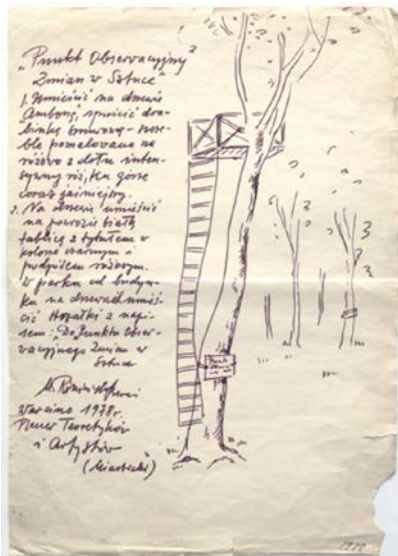 „Punkt Obserwacyjny
Zmian w Sztuce"
1. Umieścić na drzewie
Ambonę, spuścić dra-
binkę sznurową - szcze-
ble pomalowane na
różowo z dołu inten-
sywny róż, ku górze
coraz jaśniejszy.
2. Na drzewie umieścić
na powrozie białą
tablicę z tytułem w
kolorze czarnym i
podpisem różowym.
W parku od budyn-
ku na drzewach umieś-
cić strzałki z napi-
sem: „Do Punktu Obser-
wacyjnego Zmian w
Sztuce
1978r.
Plener Teoretyków
i Artystów
(Miastecki)
Punkt
1978